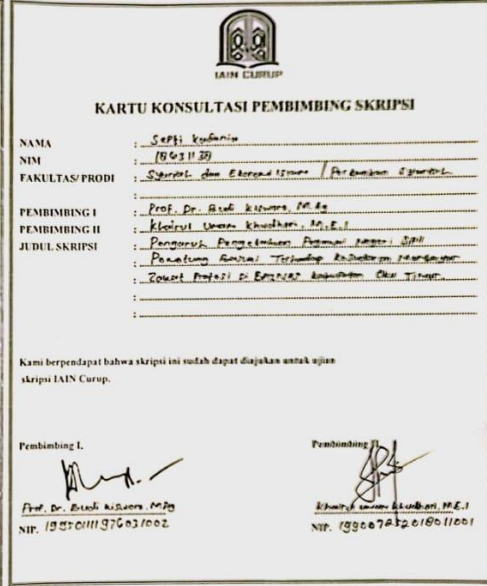 IAIN CURUP
KARTU KONSULTASI PEMBIMBING SKRIPSI
NAMA : Septi
NIM : 18631138
FAKULTAS/ PRODI : Syariah dan Ekonomi Islam / Perbankan Syariah
:
PEMBIMBING I : Prof. Dr. Budi Kisworo, M.Ag
PEMBIMBING II : Khairul Umam Khudhori, M.E.I
JUDUL SKRIPSI : Pengaruh Pengetahuan Pegawai Negeri Sipil
: Terhadap Kesadaran Membayar
: Zakat Profesi di BAZNAS Kabupaten Oku Timur.
:
:
Kami berpendapat bahwa skripsi ini sudah dapat diajukan untuk ujian
skripsi IAIN Curup.
Pembimbing I,
Pembimbing II,
Prof. Dr. Budi Kisworo, M.Ag
Khairul Umam Khudhori, M.E.I
NIP. 195501111976031002
NIP. 199007252018011001